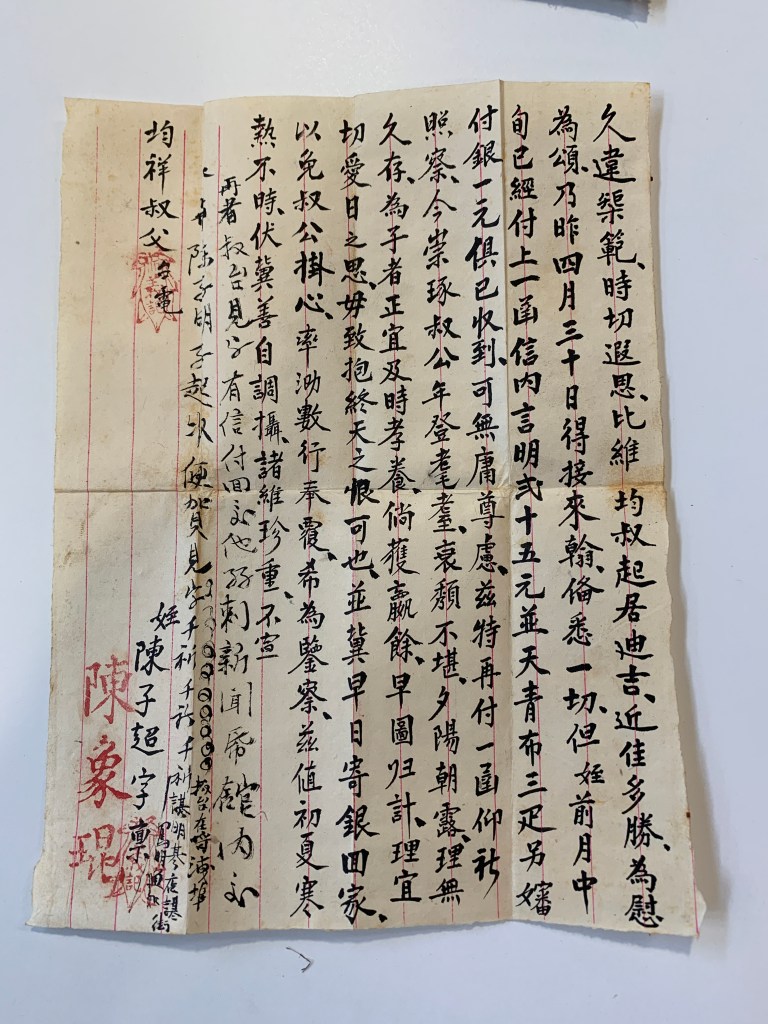 久違榘範、時切遐思、比維 均叔起居迪吉、近佳多勝、為慰
為頌、乃昨四月三十日得接來翰、俻悉一切、但姪前月中
旬已經付上一函信內言明弍十五元並天青布三疋另嬸
付銀一元俱已收到、可無庸尊慮、玆特再付一函仰祈
照察、今崇琢叔公年登耄耋、衰頽不堪、夕陽朝露、理無
久存、為子者正宜及時孝養、倘獲贏餘、早圖归計、理宜
切愛日之思、毋致抱終天之恨可也、並冀早日寄銀回家、
以免叔公掛心、率泐數行奉覆、希為鑒察、茲值初夏寒
熱不時、伏冀善自調攝、諸維珍重、不宣
再者叔台見字有信付回交他
新聞 館內交
陳子明子起 便
見字千祈千祈千祈
均祥叔父台電
姪陳子超字稟
陳象琨